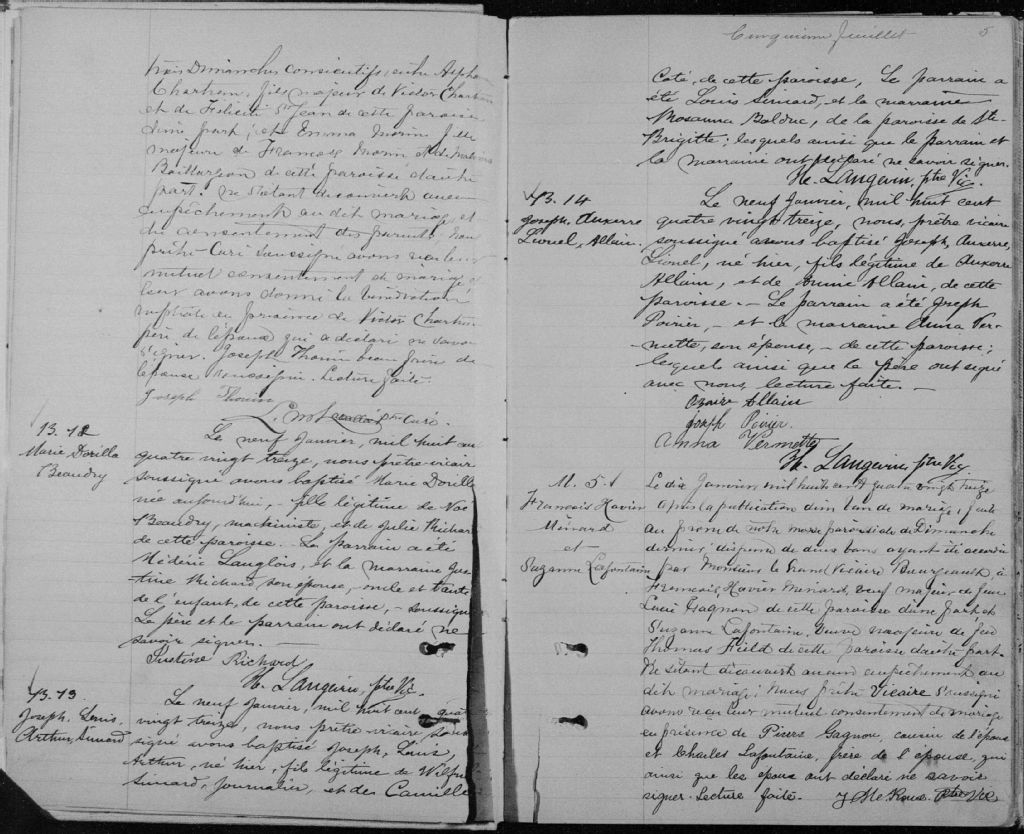 trois Dimanches consécutifs, entre Alpho
Chartrin, fils majeur de Victor Chartrin
et de Félicité St Jean de cette paroisse
d'une part; et Emma Morin fille
majeure de François Morin et de
Baillargeon de cette paroisse d'autre
part. ne s'étant découvert aucun
empêchement au dit mariage, et
du consentement des parents. nous
prêtre-Curé soussigné avons reçu leur
mutuel consentement de mariage, et
leur avons donné la bénédiction
nuptiale en présence de Victor Chartrin
père de l'époux qui a déclaré ne savoir
signer. Joseph Thouin beau frère de
l'épouse soussigné. Lecture faite.
Joseph Thouin
Ptre Curé.
B. 12
Marie Dorilla
Beaudry
Le neuf Janvier, mil huit cent
quatre vingt treize, nous prêtre vicaire
soussigné avons baptisé Marie Dorilla
née aujourd'hui, fille légitime de Noé
Beaudry, machiniste, et de Julie Richard
de cette paroisse. Le parrain a été
Médéric Langlois, et la marraine Jus-
tine Richard son épouse, oncle et tante
de l'enfant, de cette paroisse, - soussignée
Le père et le parrain ont déclaré ne
savoir signer. -
Justine Richard
H. Langevin, ptre Vic.
B. 13.
Joseph, Louis,
Arthur, Simard
Le neuf Janvier, mil huit cent quatre
vingt treize, nous, prêtre vicaire sous-
signé avons baptisé Joseph, Louis,
Arthur, né hier, fils légitime de Wilfrid
Simard, Journalier, et de Camille
Cinquième feuillet 5
Coté, de cette paroisse, Le parrain a
été Louis Simard, et la marraine
Rosanna Bolduc, de la paroisse de Ste-
Brigitte; lesquels ainsi que le parrain et
la marraine ont déclaré ne savoir signer.
H. Langevin, ptre Vic.
B. 14
Joseph, Auxerre
Lionel, Allain.
Le neuf Janvier, mil huit cent
quatre vingt treize, nous, prêtre vicaire
soussigné avons baptisé Joseph, Auxerre,
Lionel, né hier, fils légitime de Auxerre
Allain, et de Allain, de cette
paroisse. - Le parrain a été Joseph
Poirier, - et la marraine Anna Ver-
mette, son épouse, - de cette paroisse;
lesquels ainsi que le père ont signé
avec nous, lecture faite. -
Allain
Joseph Poirier
Anna Vermette
H. Langevin, ptre Vic.
M. 5.
François Xavier
Ménard
et
Suzanne Lafontaine
Le dix Janvier mil huit cent quatre vingt treize
après la publication d'un ban de mariage, faite
au prone de notre messe paroissiale de Dimanche
dernier; dispense de deux bans ayant été accordée
par Monsieur le Grand Vicaire Bourgeault, à
François Xavier Ménard, veuf majeur de feue
Lucie Gagnon de cette paroisse d'une part, et
Suzanne Lafontaine, veuve majeure de feu
Thomas Field de cette paroisse d'autre part.
Ne s'étant découvert aucun empêchement au
dit mariage; Nous prêtre Vicaire soussigné
avons reçu leur mutuel consentement de mariage
en présence de Pierre Gagnon, cousin de l'époux
et Charles Lafontaine, frère de l'épouse, qui
ainsi que les époux ont déclaré ne savoir
signer. Lecture faite. ptre Vic